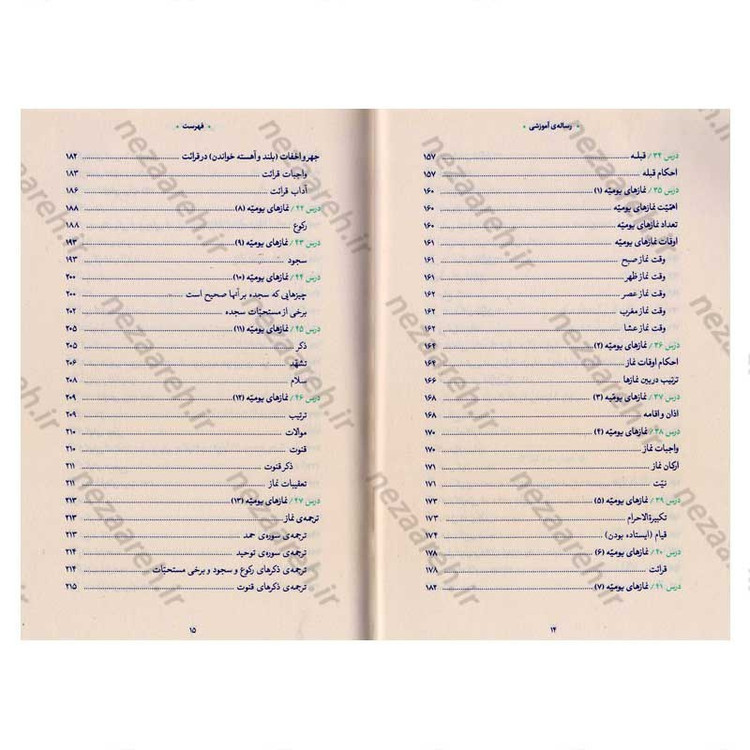 رساله‌ی آموزشی
درس ۳۴/ قبله ... ۱۵۷
احکام قبله ... ۱۵۷
درس ۳۵/ نمازهای یومیّه (۱) ... ۱۶۰
اهمّیّت نمازهای یومیّه ... ۱۶۰
تعداد نمازهای یومیّه ... ۱۶۰
اوقات نمازهای یومیّه ... ۱۶۱
وقت نماز صبح ... ۱۶۱
وقت نماز ظهر ... ۱۶۱
وقت نماز عصر ... ۱۶۲
وقت نماز مغرب ... ۱۶۲
وقت نماز عشا ... ۱۶۲
درس ۳۶/ نمازهای یومیّه (۲) ... ۱۶۴
احکام اوقات نماز ... ۱۶۴
ترتیب در بین نمازها ... ۱۶۶
درس ۳۷/ نمازهای یومیّه (۳) ... ۱۶۸
اذان و اقامه ... ۱۶۸
درس ۳۸/ نمازهای یومیّه (۴) ... ۱۷۰
واجبات نماز ... ۱۷۰
ارکان نماز ... ۱۷۱
نیّت ... ۱۷۱
درس ۳۹/ نمازهای یومیّه (۵) ... ۱۷۳
تکبیرةالاحرام ... ۱۷۳
قیام (ایستاده بودن) ... ۱۷۴
درس ۴۰/ نمازهای یومیّه (۶) ... ۱۷۸
قرائت ... ۱۷۸
درس ۴۱/ نمازهای یومیّه (۷) ... ۱۸۲
۱۴
فهرست
جهر و اخفات (بلند و آهسته خواندن) در قرائت ... ۱۸۲
واجبات قرائت ... ۱۸۳
آداب قرائت ... ۱۸۶
درس ۴۲/ نمازهای یومیّه (۸) ... ۱۸۸
رکوع ... ۱۸۸
درس ۴۳/ نمازهای یومیّه (۹) ... ۱۹۳
سجود ... ۱۹۳
درس ۴۴/ نمازهای یومیّه (۱۰) ... ۲۰۰
چیزهایی که سجده بر آنها صحیح است ... ۲۰۰
برخی از مستحبّات سجده ... ۲۰۲
درس ۴۵/ نمازهای یومیّه (۱۱) ... ۲۰۵
ذکر ... ۲۰۵
تشهّد ... ۲۰۶
سلام ... ۲۰۸
درس ۴۶/ نمازهای یومیّه (۱۲) ... ۲۰۹
ترتیب ... ۲۰۹
موالات ... ۲۱۰
قنوت ... ۲۱۰
ذکر قنوت ... ۲۱۱
تعقیبات نماز ... ۲۱۱
درس ۴۷/ نمازهای یومیّه (۱۳) ... ۲۱۳
ترجمه‌ی نماز ... ۲۱۳
ترجمه‌ی سوره‌ی حمد ... ۲۱۳
ترجمه‌ی سوره‌ی توحید ... ۲۱۴
ترجمه‌ی ذکرهای رکوع و سجود و برخی مستحبّات ... ۲۱۴
ترجمه‌ی ذکرهای قنوت ... ۲۱۵
۱۵
nezaareh.ir